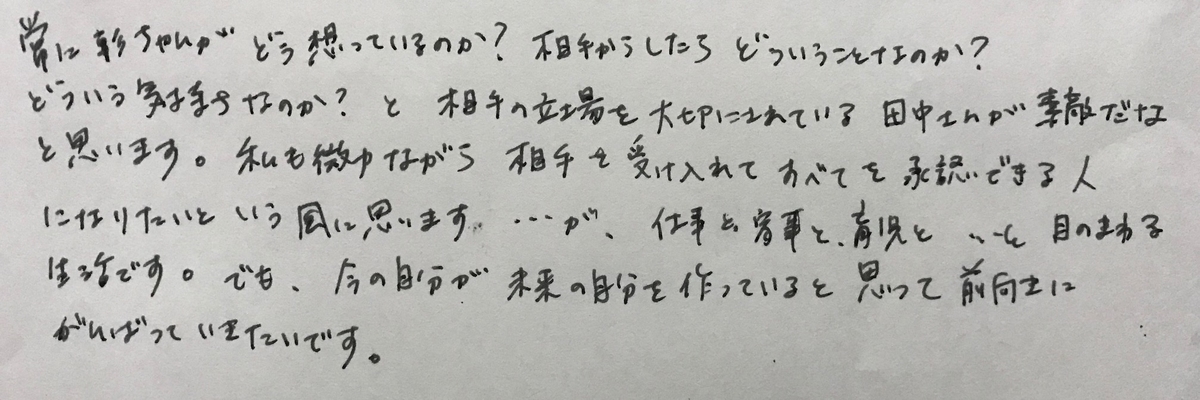 常に彩ちゃんが どう想っているのか? 相手からしたら どういうことなのか?
どういう気持ちなのか? と 相手の立場を大切にされている 田中さんが素敵だな
と思います。私も微力ながら 相手を受け入れて すべてを承認できる人
になりたいと いう風に思います …が、仕事と、家事と、育児と …と 目のまわる
生活です。でも、今の自分が 未来の自分を作っていると思って 前向きに
がんばって いきたいです。